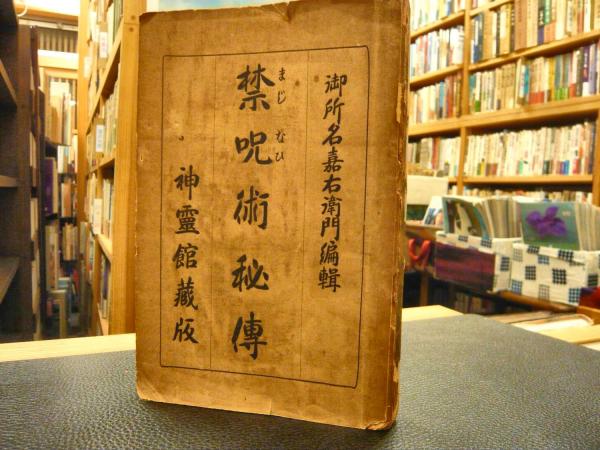 御所名嘉右衛門編輯
禁呪術秘傳
まじなひ
神靈館藏版